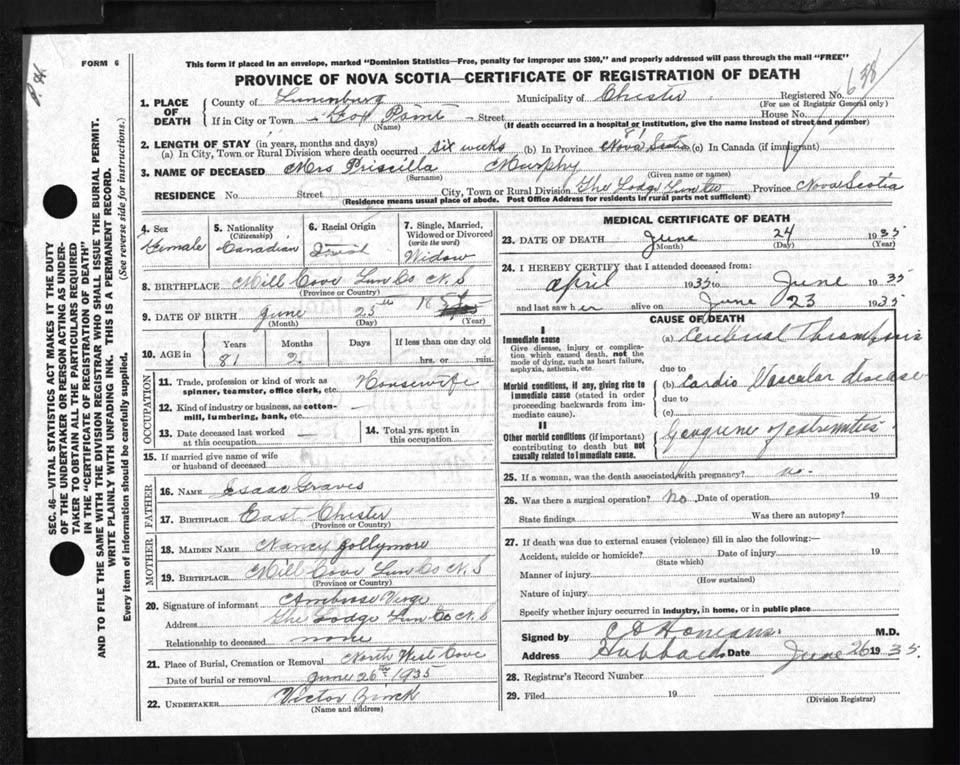 FORM 6
This form if placed in an envelope, marked "Dominion Statistics—Free, penalty for improper use $300," and properly addressed will pass through the mail "FREE"
PROVINCE OF NOVA SCOTIA—CERTIFICATE OF REGISTRATION OF DEATH
1. PLACE OF DEATH
County of Lunenburg Municipality of Chester Registered No. 638
(For use of Registrar General only)
If in City or Town Fox Point Street House No.
(Name) (If death occurred in a hospital or institution, give the name instead of street and number)
2. LENGTH OF STAY (in years, months and days)
(a) In City, Town or Rural Division where death occurred six weeks (b) In Province 81 Nova Scotia (c) In Canada (if immigrant)
3. NAME OF DECEASED Mrs Priscilla Murphy
(Surname) (Given name or names)
RESIDENCE No. Street City, Town or Rural Division The Lodge Lun Co Province Nova Scotia
(Residence means usual place of abode. Post Office Address for residents in rural parts not sufficient)
4. Sex
Female
5. Nationality
(Citizenship)
Canadian
6. Racial Origin
7. Single, Married, Widowed or Divorced
(write the word)
Widow
8. BIRTHPLACE Mill Cove Lun Co N. S
(Province or Country)
9. DATE OF BIRTH June 25th 18
(Month) (Day) (Year)
10. AGE in
Years Months Days If less than one day old
81 2 hrs. or min.
OCCUPATION
11. Trade, profession or kind of work as spinner, teamster, office clerk, etc. Housewife
12. Kind of industry or business, as cotton-mill, lumbering, bank, etc. —
13. Date deceased last worked at this occupation —
14. Total yrs. spent in this occupation
15. If married give name of wife or husband of deceased
FATHER
16. NAME Isaac Graves
17. BIRTHPLACE East Chester
(Province or Country)
MOTHER
18. MAIDEN NAME Nancy Jollymore
19. BIRTHPLACE Mill Cove Lun Co N. S
(Province or Country)
20. Signature of informant Ambrose Verge
Address The Lodge Lun Co N. S
Relationship to deceased none
21. Place of Burial, Cremation or Removal North West Cove
Date of burial or removal June 26th 1935
22. UNDERTAKER Victor
(Name and address)
MEDICAL CERTIFICATE OF DEATH
23. DATE OF DEATH June 24 1935
(Month) (Day) (Year)
24. I HEREBY CERTIFY that I attended deceased from:
April 1935 to June 1935
and last saw her alive on June 23 1935
CAUSE OF DEATH
I
Immediate cause
Give disease, injury or complication which caused death, not the mode of dying, such as heart failure, asphyxia, asthenia, etc.
(a) Cerebral Thrombosis
due to
Morbid conditions, if any, giving rise to immediate cause (stated in order proceeding backwards from immediate cause).
(b) Cardio Vascular disease
due to
(c)
II
Other morbid conditions (if important) contributing to death but not causally related to immediate cause.
Gangrene of extremities
25. If a woman, was the death associated with pregnancy? no-
26. Was there a surgical operation? No, Date of operation 19
State findings Was there an autopsy?
27. If death was due to external causes (violence) fill in also the following:—
Accident, suicide or homicide? Date of injury 19
(State which)
Manner of injury
(How sustained)
Nature of injury
Specify whether injury occurred in industry, in home, or in public place
Signed by M.D.
Address Hubbards Date June 26 1935.
28. Registrar's Record Number
29. Filed 19
(Division Registrar)
SEC. 46—VITAL STATISTICS ACT MAKES IT THE DUTY
OF THE UNDERTAKER OR PERSON ACTING AS UNDER-
TAKER TO OBTAIN ALL THE PARTICULARS REQUIRED
IN THE "CERTIFICATE OF REGISTRATION OF DEATH"
AND TO FILE THE SAME WITH THE DIVISION REGISTRAR WHO SHALL ISSUE THE BURIAL PERMIT.
WRITE PLAINLY WITH UNFADING INK. THIS IS A PERMANENT RECORD.
Every item of information should be carefully supplied. (See reverse side for instructions.)